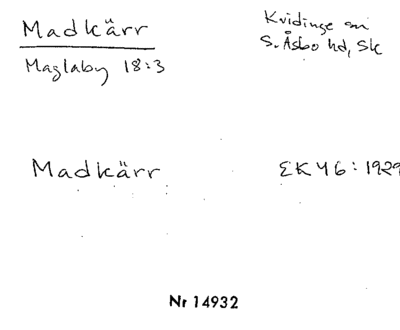 Madkärr
Maglaby 18:3
Kvidinge sn
S. Åsbo hd, Sk
Madkärr
EK 46: 1929
Nr 14932